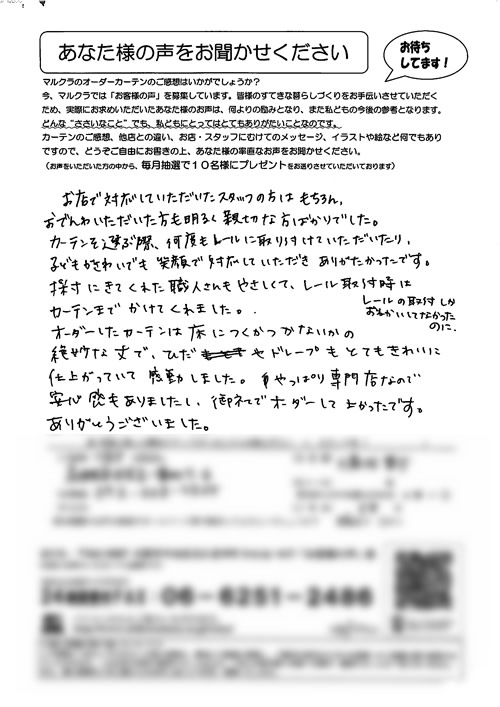 あなた様の声をお聞かせください
お待ち
してます！
マルクラのオーダーカーテンのご感想はいかがでしょうか？
今、マルクラでは「お客様の声」を募集しています。皆様のすてきな暮らしづくりをお手伝いさせていただく
ため、実際にお求めいただいたあなた様のお声は、何よりの励みとなり、また私どもの今後の参考となります。
どんな“ささいなこと”でも、私どもにとってはとてもありがたいことなのです。
カーテンのご感想、他店との違い、お店・スタッフにむけてのメッセージ、イラストや絵など何でもあり
ですので、どうぞご自由にお書きの上、あなた様の率直なお声をお聞かせください。
（お声をいただいた方の中から、毎月抽選で１０名様にプレゼントをお送りさせていただいております）
お店で対応していただいたスタッフの方は もちろん,
おでんわいただいた方も明るく 親切な方ばかりでした。
カーテンを選ぶ際、何度もレールに取り付けていただいたり,
子どもがさわいでも 笑顔で対応していただき ありがたかったです。
採寸にきてくれた 職人さんも やさしくて、レール取付時は
カーテンまで かけてくれました。
レールの取付しか
おねがいしてなかった
のに.
オーダーしたカーテンは 床につくかつかないかの
絶妙な丈で、ひだ や ドレープも とてもきれいに
仕上がっていて 感動しました。やっぱり専門店なので
安心感もありましたし、御社でオーダーして よかったです。
ありがとうございました。
06-6251-2486